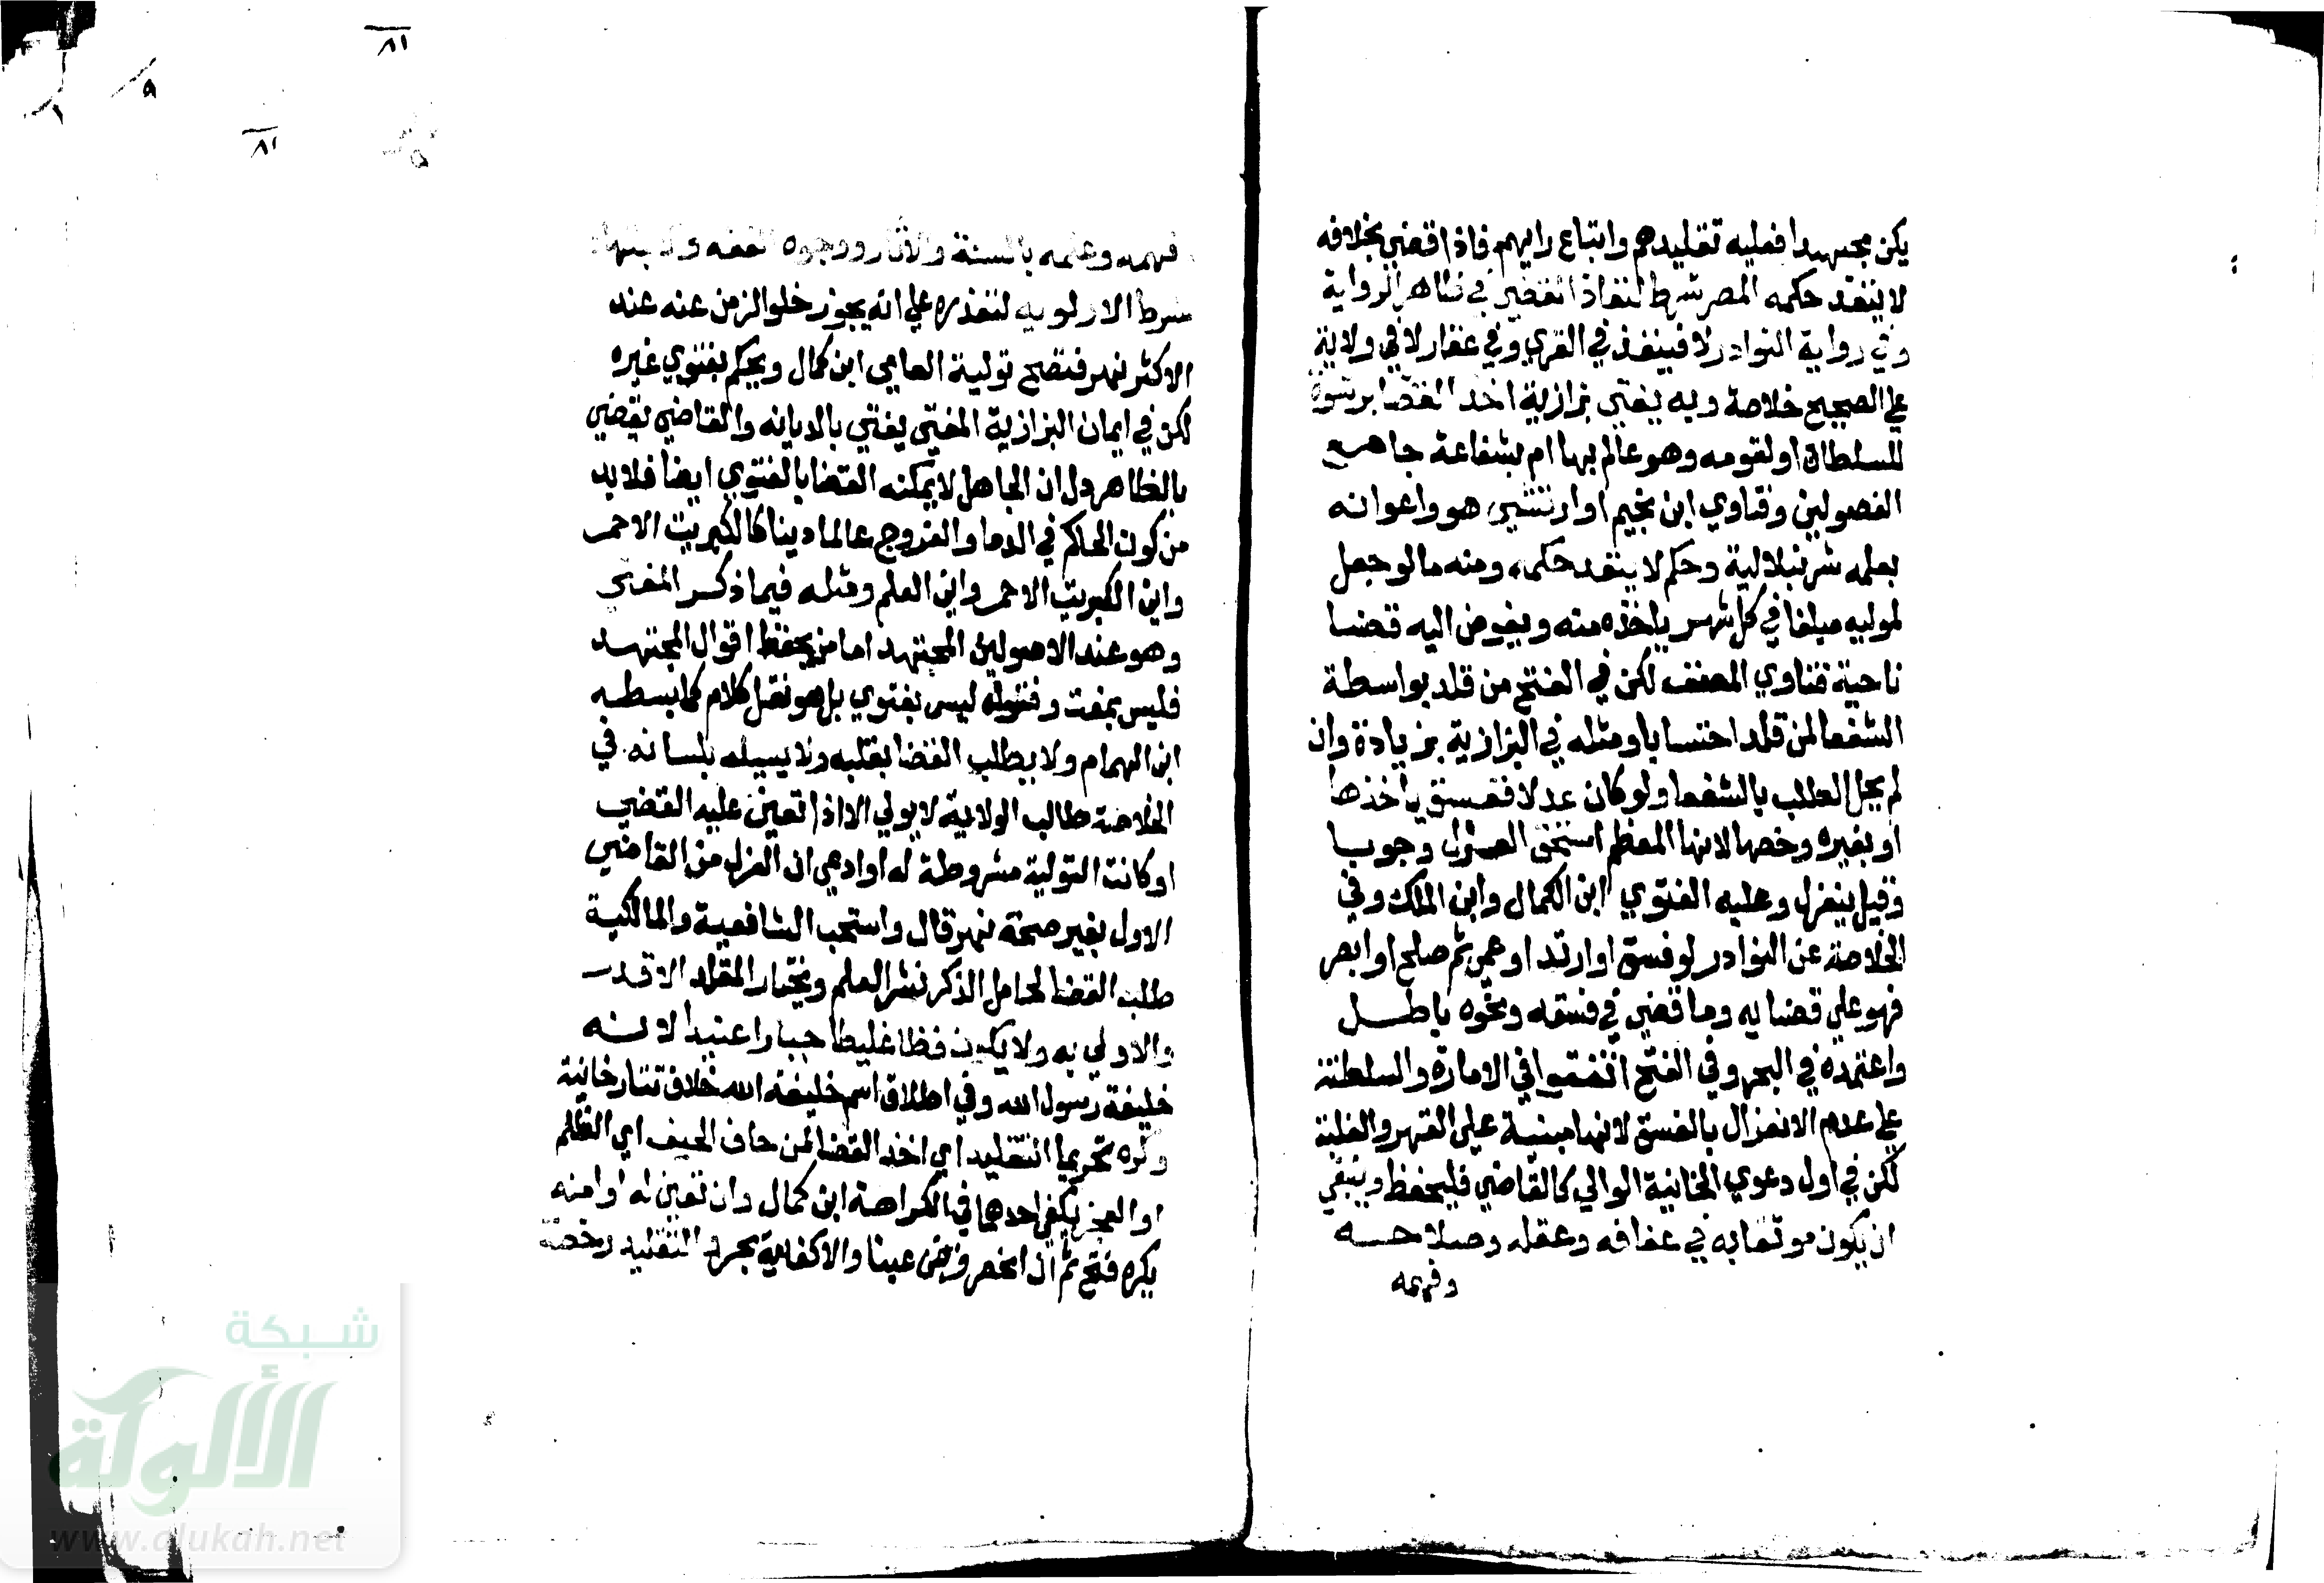 يكن مجتهدا فعليه تقليدهم واتباع رايهم فاذا قضي بخلافه
لا ينفذ حكمه المصر شرط لنفاذ القضي في ظاهر الرواية
وفي رواية النوادر لا فينفذ في القري وفي عقار لا في ولاية
علي الصحيح خلاصة وبه يفتي بزازية اخذ القضا برشوة
للسلطان او لقومه وهو عالم بها ام بشفاعة جامع
الفصولين وفتاوي ابن نجيم او ارتشي هو واعوانه
بعلمه شرنبلالية وحكم لا ينفذ حكمه ومنه ما لو جعل
لموليه مبلغا في كل شهر ياخذه منه ويفوض اليه قضا
ناحية فتاوي المصنف لكن في الفتح من قلد بواسطة
الشفعا لمن قلد احتسابا ومثله في البزازية بزيادة وان
لم يحل الطلب بالشفعا ولو كان عدلا ففسق ياخذها
او بغيره وخصها لانها المعظم استحق العزل وجوبا
وقيل ينعزل وعليه الفتوي ابن الكمال وابن الملك وفي
الخلاصة عن النوادر لو فسق او ارتد او عمي ثم صلح او ابصر
فهو علي قضايه وما قضي في فسقه ونحوه باطل
واعتمده في البحر وفي الفتح اتفقوا في الامارة والسلطنة
علي عدم الانعزال بالفسق لانها مبنية علي القهر والغلبة
لكن في اول دعوي الخانية الوالي كالقاضي فليحفظ وينبغي
ان يكون موثقا به في عفافه وعقله وصلاحه
وفهمه
فهمه وعلمه بالسنة والاثار ووجوه الفقه والاجتهاد
شرط الاولوية لتعذره علي انه يجوز خلو الزمن عنه عند
الاكثر نهر فتصح تولية العامي ابن كمال ويحكم بفتوي غيره
لكن في ايمان البزازية المفتي يفتي بالديانه والقاضي يقضي
بالظاهر دل ان الجاهل لا يمكنه القضا بالفتوي ايضا فلا بد
من كون الحاكم في الدما والفروج عالما دينا كالكبريت الاحمر
واين الكبريت الاحمر واين العلم ومثله فيما ذكر المفتي
وهو عند الاصولين المجتهد اما من يحفظ اقوال المجتهد
فليس بمفت وفتواه ليس بفتوي بل هو نقل كلام كما بسطه
ابن الهمام ولا يطلب القضا بقلبه ولا يسيله بلسانه في
الخلاصة طالب الولاية لا يولي الا اذا تعين عليه القضي
او كانت التولية مشروطة له او ادعي ان العزل من القاضي
الاول بغير صحة نهر قال واستحب الشافعية والمالكية
طلب القضا لخامل الذكر نشر العلم ويختار المقلد الاقدر
والاولي به ولا يكون فظا غليظا جبارا عنيدا لانه
خليفة رسول الله وفي اطلاق اسم خليفة الله خلاف تتارخانية
وكره تحريما التقليد اي اخذ القضا لمن خاف الحيف اي الظلم
او العجز يكفي احدهما في الكراهة ابن كمال وان تعين له او امنه
يكره فتح ثم ان انحصر فرض عينا والا كفاية بحر والتقليد رخصة
٨١
٨١
شبكة
الألوكة
www.alukah.net